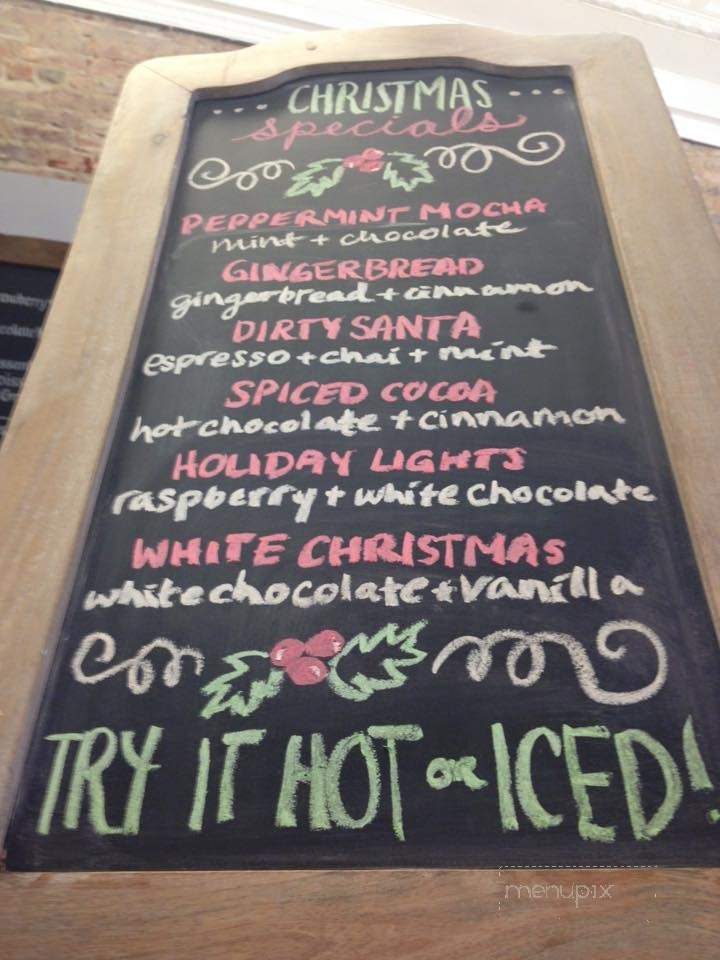 ... CHRISTMAS ...
specials
PEPPERMINT MOCHA
mint + chocolate
GINGERBREAD
gingerbread + cinnamon
DIRTY SANTA
espresso + chai + mint
SPICED COCOA
hot chocolate + cinnamon
HOLIDAY LIGHTS
raspberry + white chocolate
WHITE CHRISTMAS
white chocolate + vanilla
TRY IT HOT OR ICED!
menupix